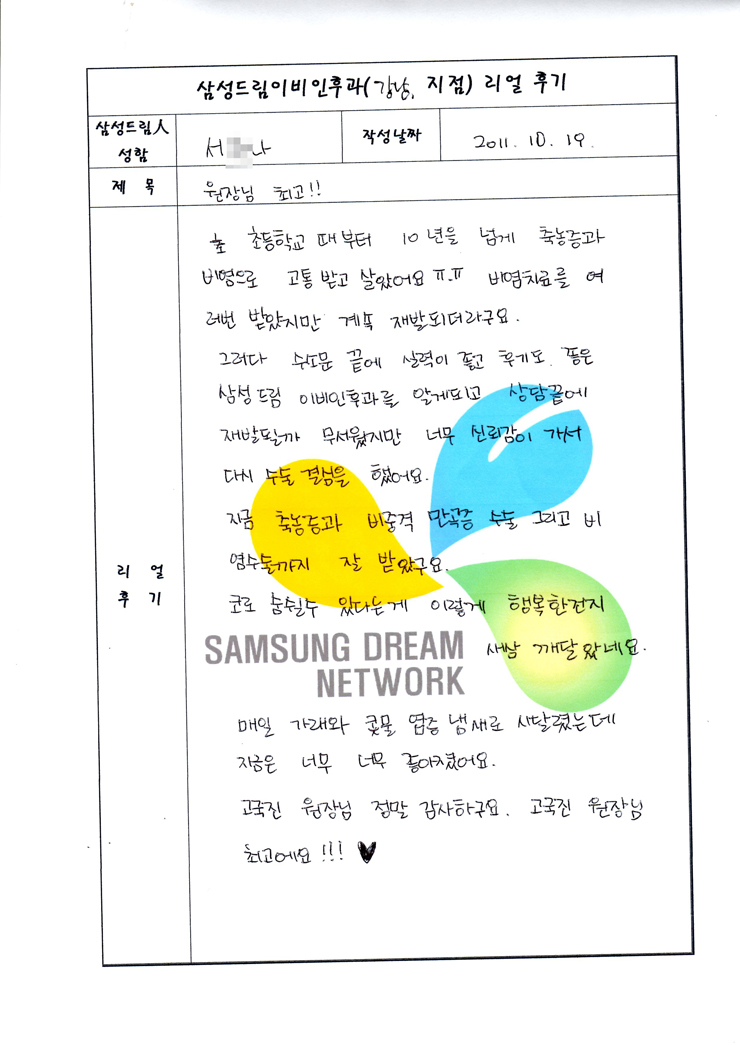 삼성드림이비인후과(강남, 지점) 리얼 후기
삼성드림人 성함
서 나
작성날짜
2011. 10. 19.
제 목
원장님 최고!!
리 얼
후 기
초등학교 때부터 10년을 넘게 축농증과
비염으로 고통 받고 살았어요 ㅠ.ㅠ 비염치료를 여
러번 받았지만 계속 재발되더라구요.
그러다 수소문 끝에 실력이 좋고 후기도 좋은
삼성드림 이비인후과를 알게되고 상담끝에
재발될까 무서웠지만 너무 신뢰감이 가서
다시 수술 결심을 했어요.
지금 축농증과 비중격 만곡증 수술 그리고 비
염수술까지 잘 받았구요.
코로 숨쉴수 있다는게 이렇게 행복한건지
새삼 깨달았네요.
SAMSUNG DREAM
NETWORK
매일 가래와 콧물 염증 냄새로 시달렸는데
지금은 너무 너무 좋아졌어요.
고국진 원장님 정말 감사하구요. 고국진 원장님
최고에요!!! ♥